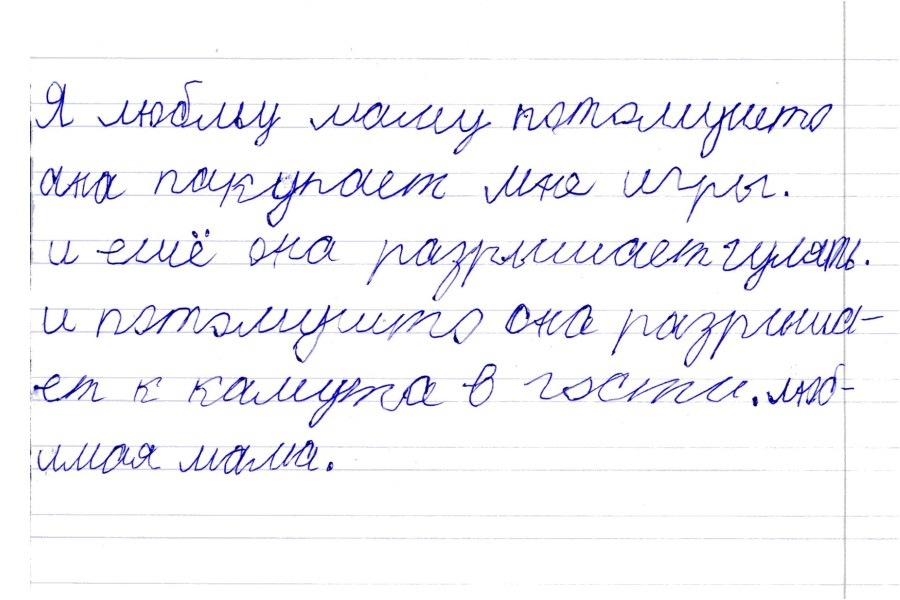 Я любльу маму потомушто
ана пакупает мне игры.
и ешё она разрышает гулять.
и потомушто она разрыша-
ет к камута в гости. люб-
имая мама.